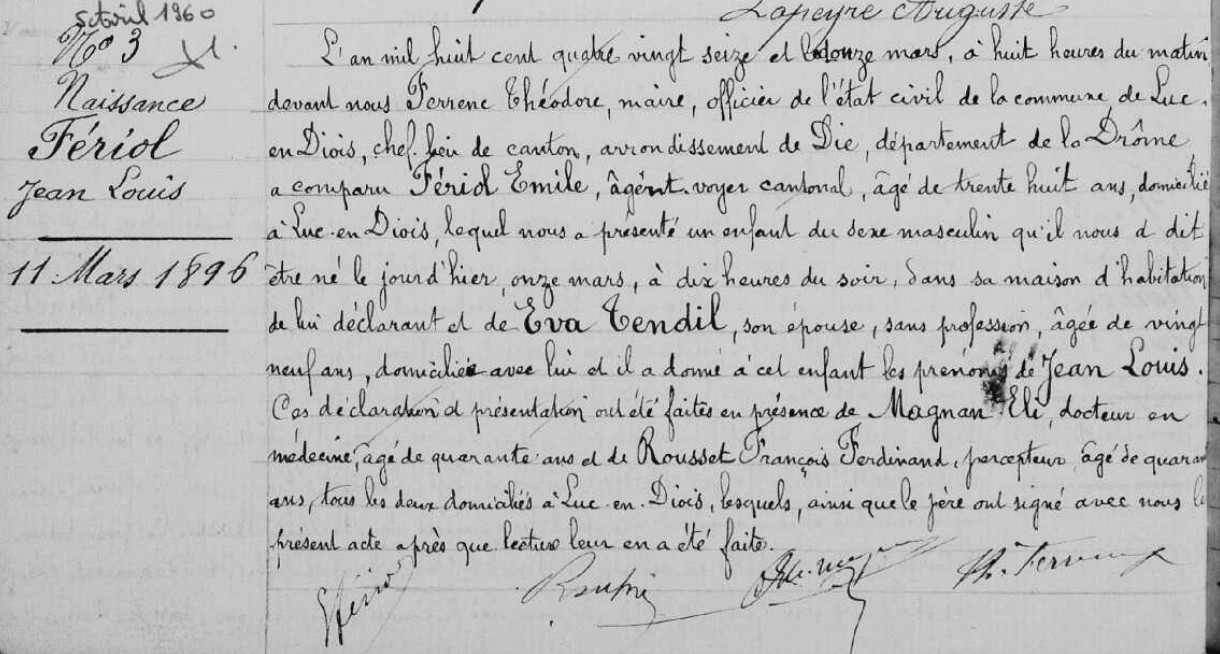 Lapeyre Auguste
avril 1960
N° 3
Naissance
Fériol
Jean Louis
11 Mars 1896
L'an mil huit cent quatre vingt seize et le douze mars, à huit heures du matin
devant nous Ferrenc Théodore, maire, officier de l'état civil de la commune de Luc.
en Diois, chef-lieu de canton, arrondissement de Die, département de la Drôme
a comparu Fériol Emile, âgent-voyer cantonal, âgé de trente huit ans, domicilié
à Luc-en-Diois, lequel nous a présenté un enfant du sexe masculin qu'il nous a dit
être né le jour d'hier onze mars, à dix heures du soir, dans sa maison d'habitation
de lui déclarant et de Eva Tendil, son épouse, sans profession, âgée de vingt
neuf ans, domiciliée avec lui et il a donné à cet enfant les prénoms de Jean Louis.
Ces déclaration et présentation ont été faites en présence de Magnan Eli, docteur en
médecine, âgé de quarante ans et de Rousset François Ferdinand, percepteur, âgé de quaran
ans, tous les deux domiciliés à Luc-en-Diois, lesquels, ainsi que le père ont signé avec nous le
présent acte après que lecture leur en a été faite.